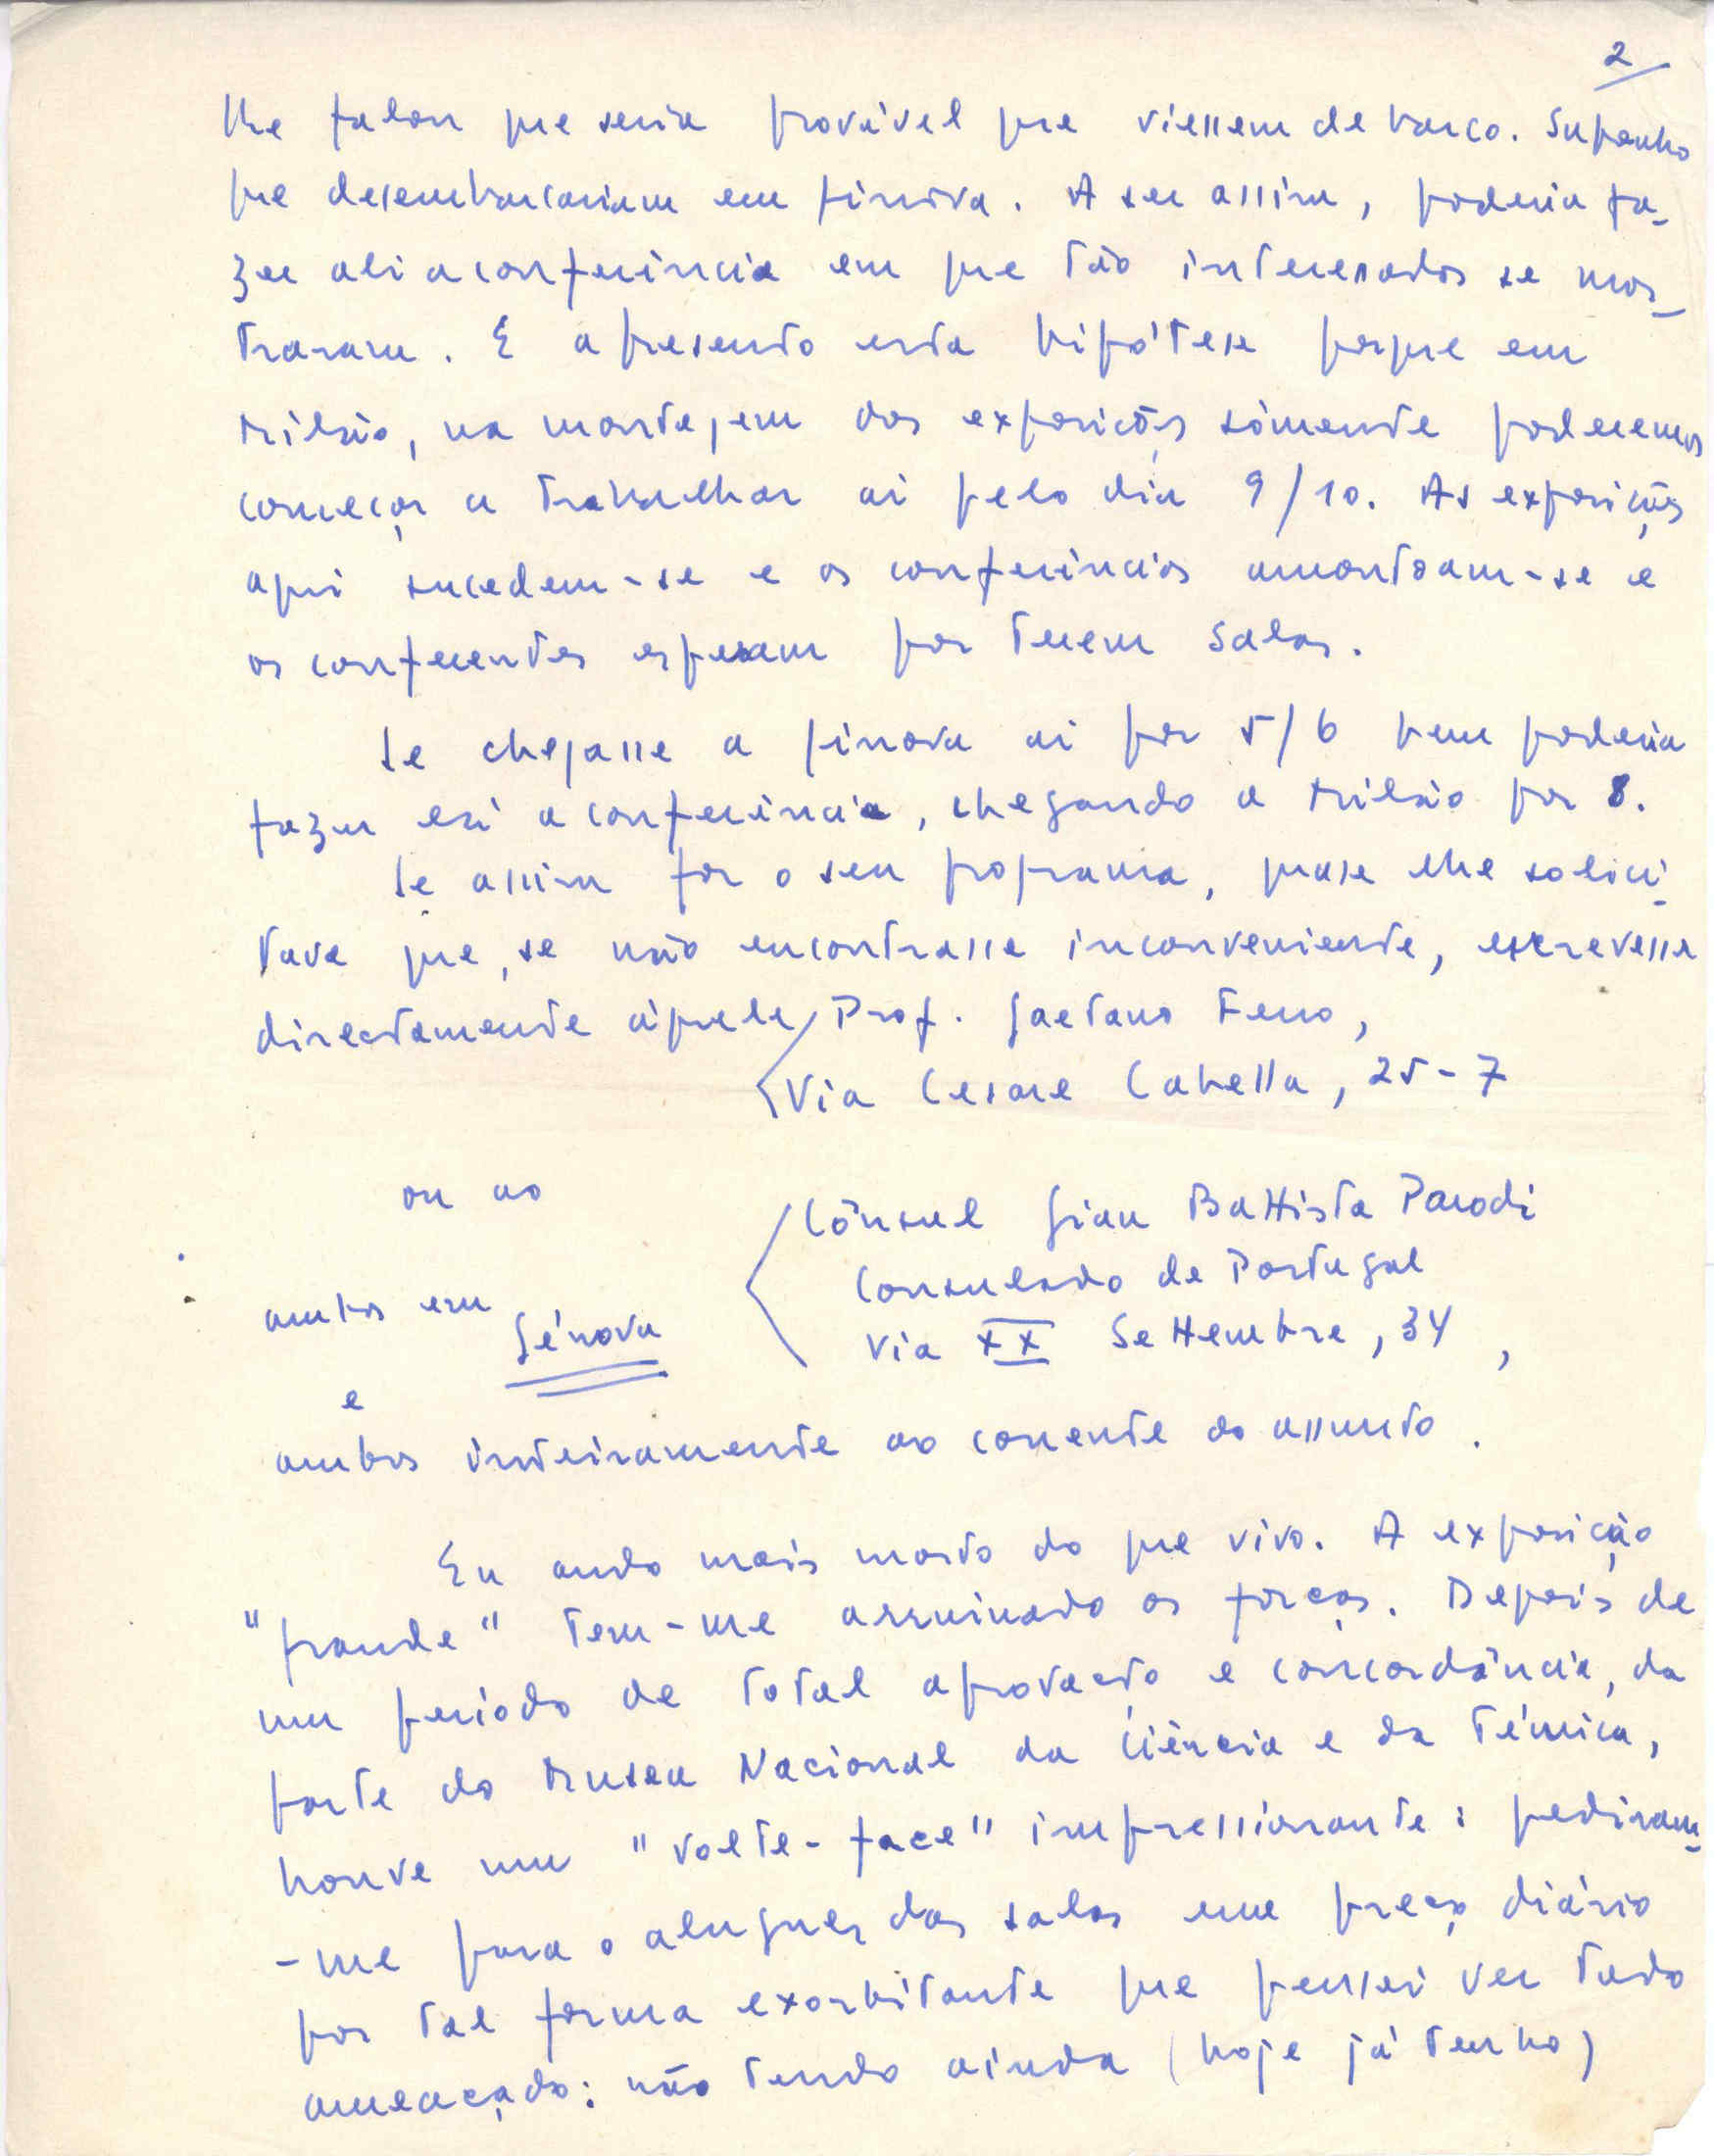 2
lhe falou que seria provável que viessem de barco. Suponho
que desembarcariam em Génova. A ser assim, poderia fa-
zer ali a conferência em que tão interessados se mos-
traram. E apresento esta hipótese porque em
Milão, na montagem das exposições sòmente poderemos
começar a trabalhar aí pelo dia 9/10. As exposições
aqui sucedem-se e as conferências amontoam-se e
os conferentes esperam por terem salas.
Se chegasse a Génova aí por 5/6 bem poderia
fazer ali a conferência, chegando a Milão por 8.
Se assim for o seu programa, quase lhe solici-
tava que, se não encontrasse inconveniente, escrevesse
directamente àquele Prof. Gaetano Ferro,
Via Cesare Cabella, 25-7
ou ao
Cônsul Gian Battista Parodi
Consulado de Portugal
Via XX Settembre, 34,
ambos em Génova
e
ambos inteiramente ao corrente do assunto.
Eu ando mais morto do que vivo. A exposição
"grande" tem-me arruinado as forças. Depois de
um período de total aprovação e concordância, da
parte do Museu Nacional da Ciência e da Técnica,
houve um "volte-face" impressionante: pediram-
-me para o aluguer das salas um preço diário
por tal forma exorbitante que pensei ver tudo
ameaçado: não tendo ainda (hoje já tenho)